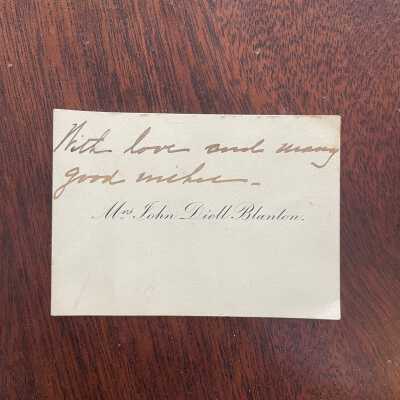 With love and many
good wishes -
Mrs John Diell Blanton.